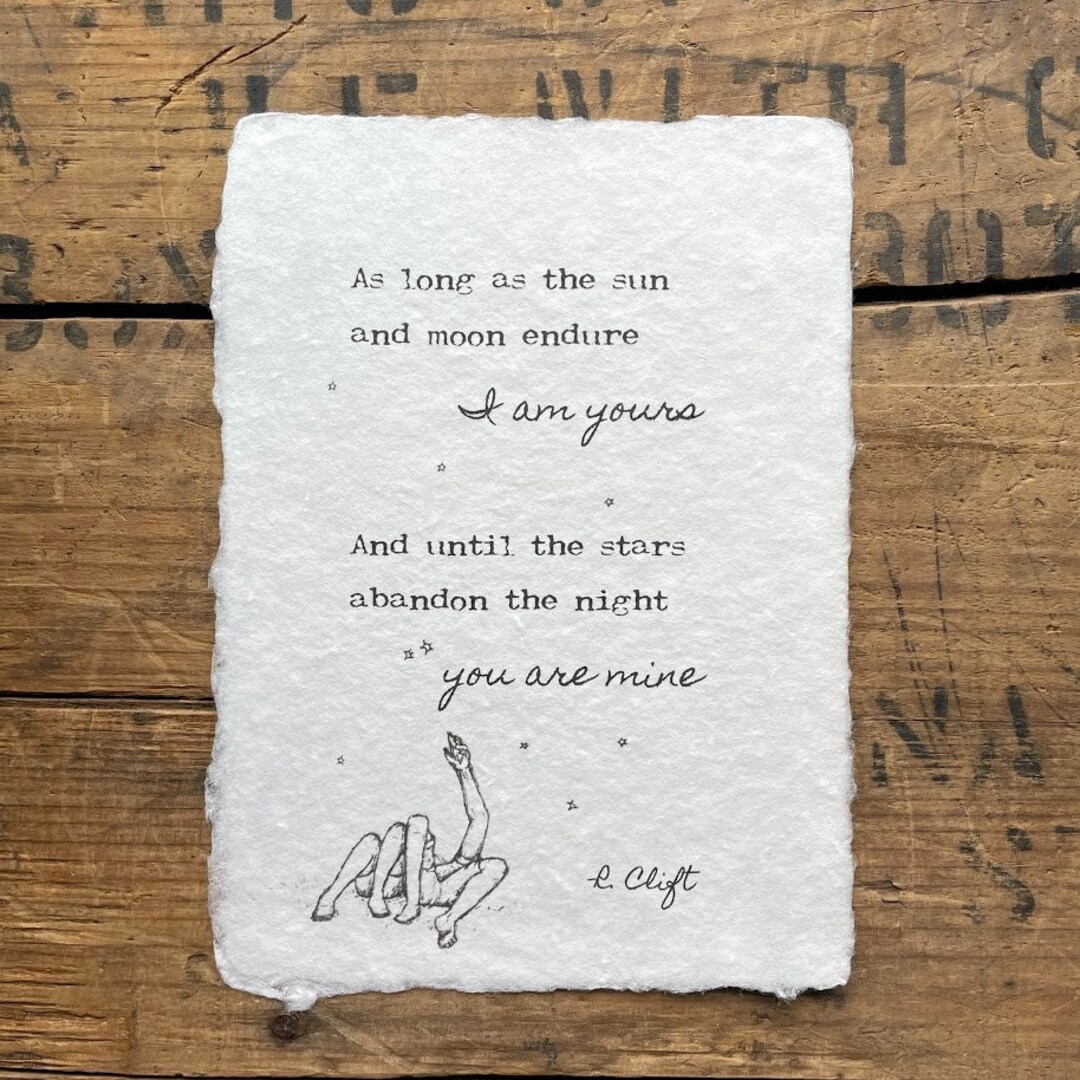 As long as the sun
and moon endure
I am yours
And until the stars
abandon the night
you are mine
R. Clift